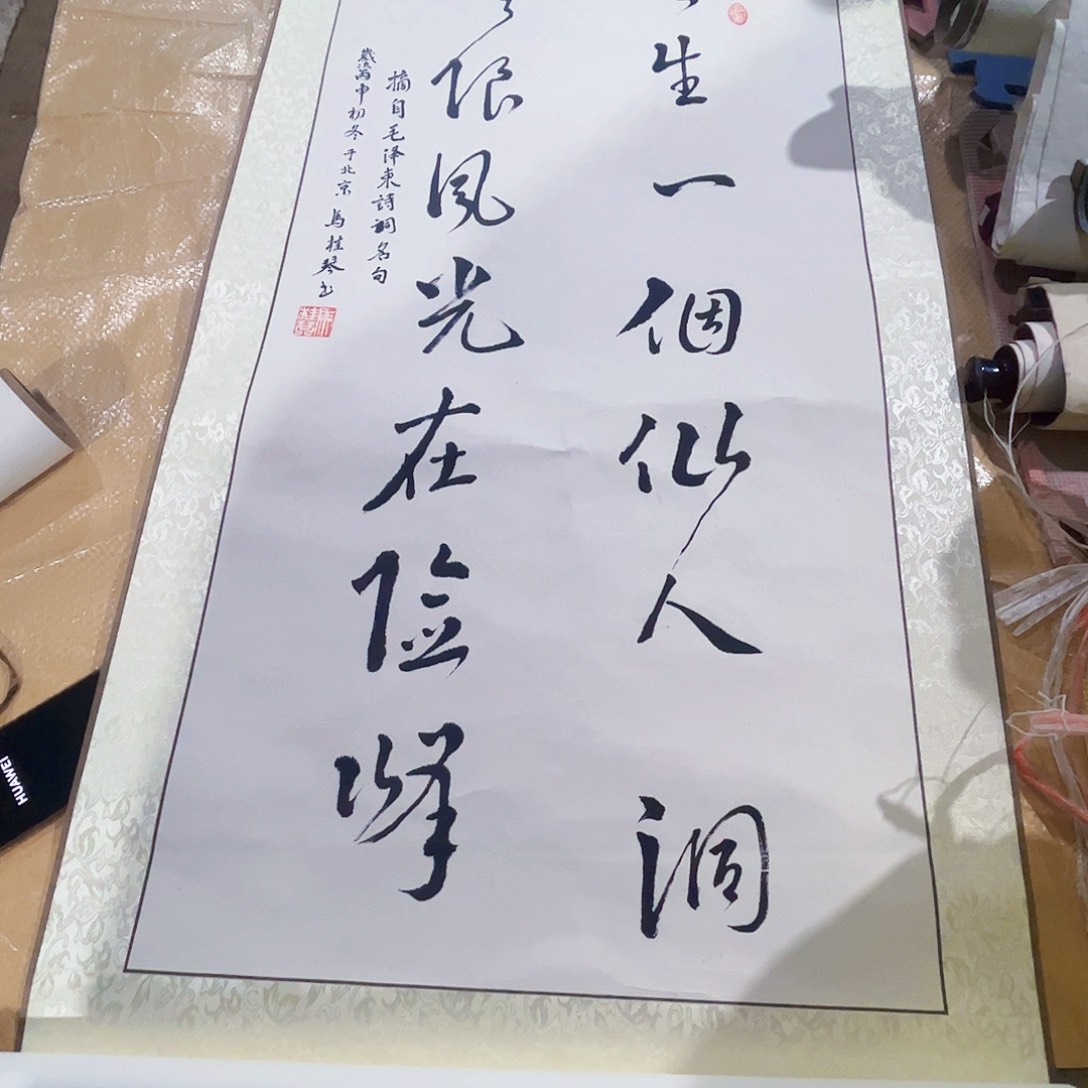 生一個仙人洞
限风光在险峰
摘自毛泽東詩詞名句
歲次丙申初冬于北京 馬桂琴书
HUAWEI